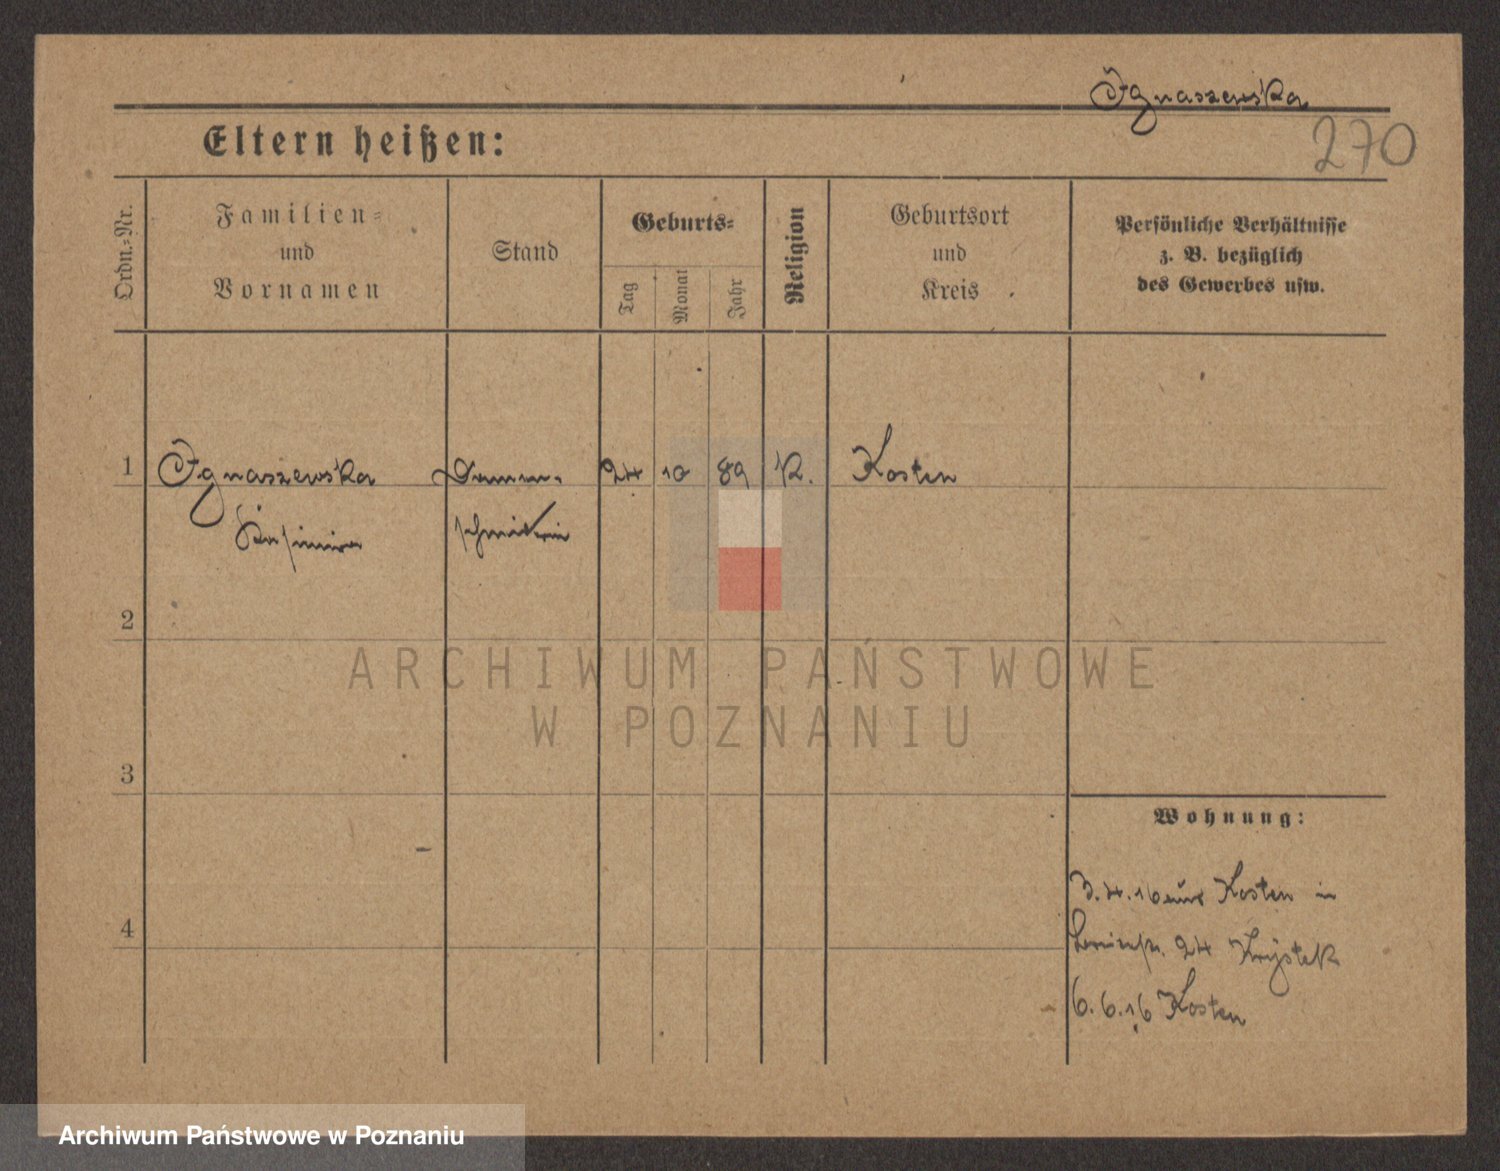 Ignaszewska
270
Eltern heißen:
Ordn.-Nr.
Familien-
und
Vornamen
Stand
Geburts-
Tag
Monat
Jahr
Religion
Geburtsort
und
Kreis
Persönliche Verhältnisse
z. B. bezüglich
des Gewerbes usw.
1 Ignaszewska Damen- 24 10 89 K. Kosten
Kasimira schneiderin
2
ARCHIWUM PAŃSTWOWE
W POZNANIU
3
Wohnung:
3.4.16 aus Kosten in
4
24 Krystek
6.6.16 Kosten
Archiwum Państwowe w Poznaniu